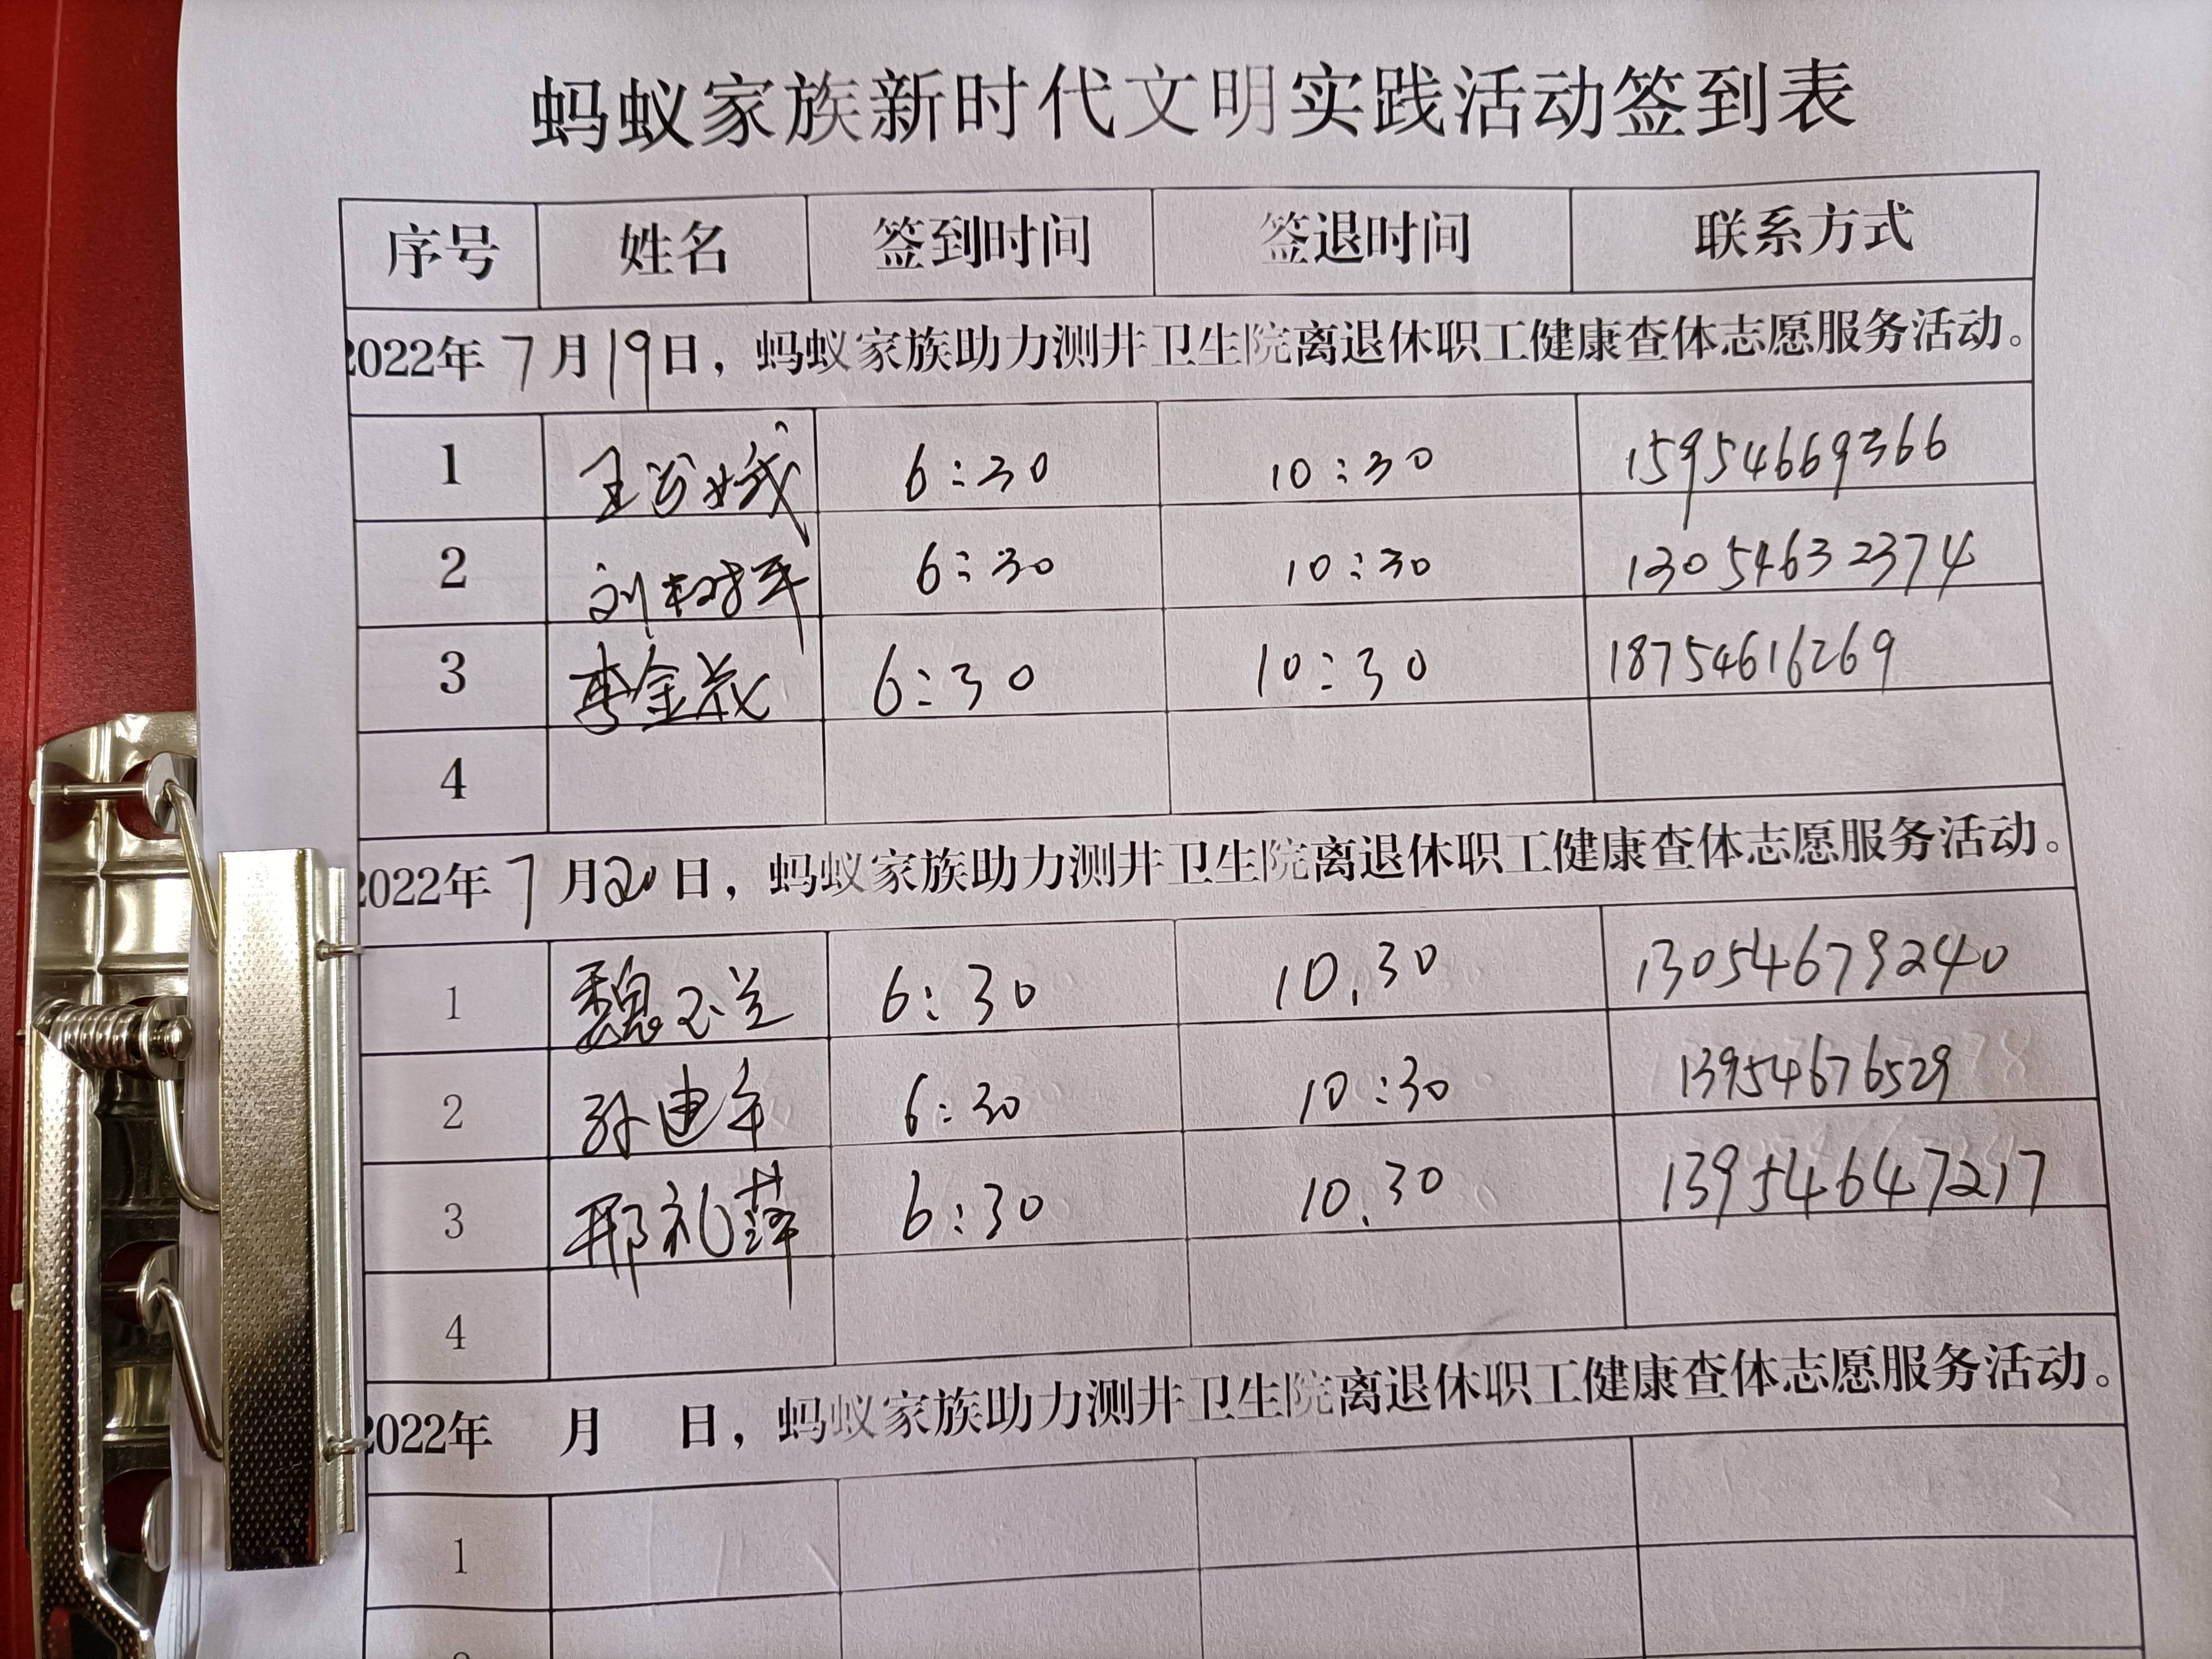 蚂蚁家族新时代文明实践活动签到表
序号 姓名 签到时间 签退时间 联系方式
2022年 7 月 19 日，蚂蚁家族助力测井卫生院离退休职工健康查体志愿服务活动。
1 6:30 10:30 15954669366
2 刘树军 6:30 10:30 13054632374
3 李金花 6:30 10:30 18754616269
4
2022年 7 月 20 日，蚂蚁家族助力测井卫生院离退休职工健康查体志愿服务活动。
1 魏玉兰 6:30 10.30 13054679240
2 孙迪年 6:30 10:30 13954676529
3 邢礼萍 6:30 10.30 13954647217
4
2022年 月 日，蚂蚁家族助力测井卫生院离退休职工健康查体志愿服务活动。
1